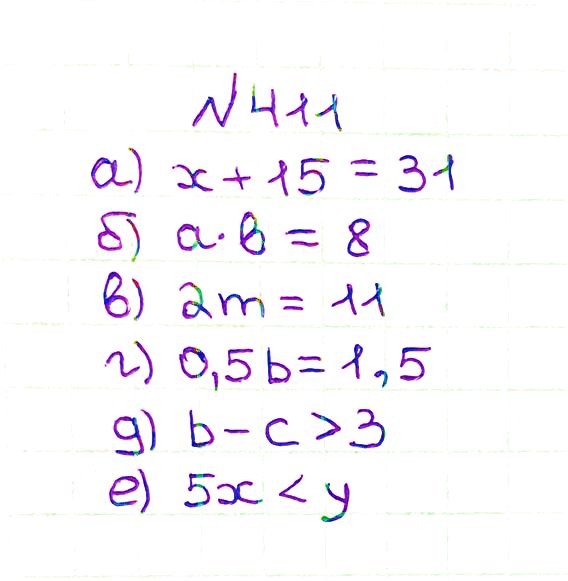 №411
а) x + 15 = 31
б) a · b = 8
в) 2m = 11
г) 0,5b = 1,5
д) b - c > 3
е) 5x < y